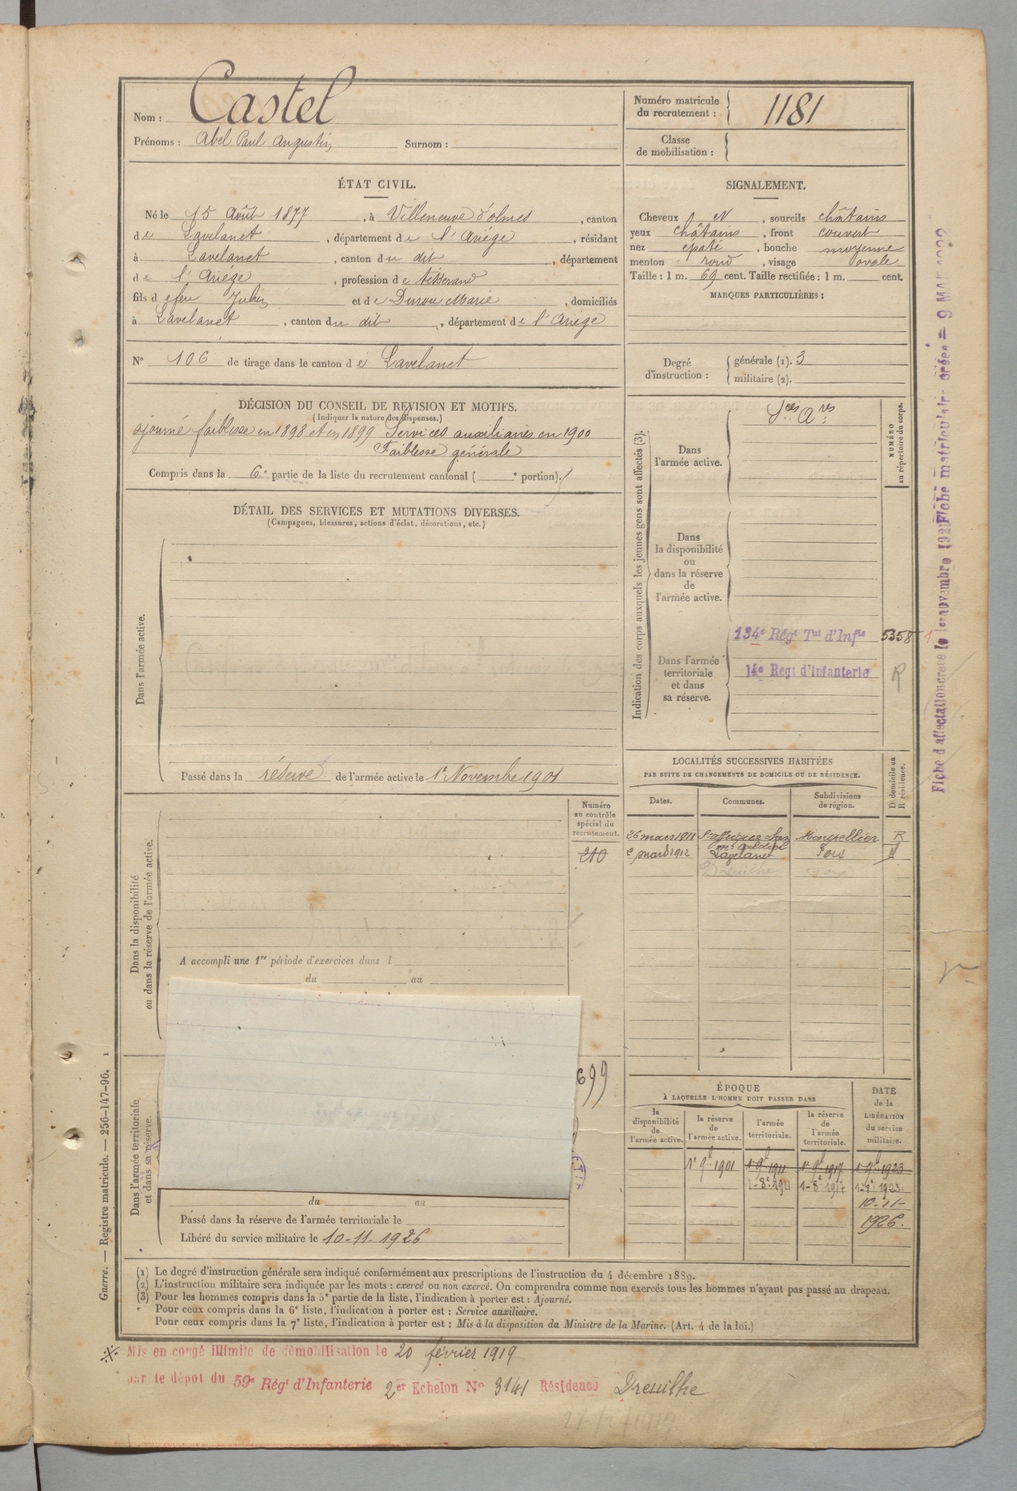 Nom : Castel
Prénoms : Abel Paul Augustin Surnom :
Numéro matricule du recrutement : 1181
Classe de mobilisation :
ÉTAT CIVIL.
Né le 15 Août 1877, à Villeneuve d'olmes, canton
de Lavelanet, département de l'Ariège, résidant
à Lavelanet, canton du dit, département
de l'Ariège, profession de tisserand
fils de feu Julien et de Durou Marie, domiciliés
à Lavelanet, canton du dit, département de l'Ariège
N° 106 de tirage dans le canton de Lavelanet
SIGNALEMENT.
Cheveux N, sourcils châtains
yeux châtains, front couvert
nez epaté, bouche moyenne
menton rond, visage ovale
Taille : 1 m. 69 cent. Taille rectifiée : 1 m. cent.
MARQUES PARTICULIÈRES :
Degré d'instruction : générale (1). 3
militaire (2).
DÉCISION DU CONSEIL DE REVISION ET MOTIFS.
(Indiquer la nature des dispenses.)
ajourné faiblesse en 1898 et en 1899 Services auxiliaires en 1900
Faiblesse générale
Compris dans la 6e partie de la liste du recrutement cantonal ( e portion).
DÉTAIL DES SERVICES ET MUTATIONS DIVERSES.
(Campagnes, blessures, actions d'éclat, décorations, etc.)
Dans l'armée active.
Passé dans la réserve de l'armée active le 1er Novembre 1901
Indication des corps auxquels les jeunes gens sont affectés (3).
NUMÉRO au répertoire du corps.
Dans l'armée active.
Sces Ares
Dans la disponibilité ou dans la réserve de l'armée active.
Dans l'armée territoriale et dans sa réserve.
134e Régt Tal d'Infie 5358
14e Régt d'Infanterie R
LOCALITÉS SUCCESSIVES HABITÉES
PAR SUITE DE CHANGEMENTS DE DOMICILE OU DE RÉSIDENCE.
D domicile ou R résidence.
Dates. Communes. Subdivisions de région.
26 mars 1911 Montpellier R
2 mars 1912 Lavelanet Foix
Dreuilhe Foix
Numéro au contrôle spécial du recrutement.
210
Dans la disponibilité ou dans la réserve de l'armée active.
A accompli une 1re période d'exercices dans l
du au
699
Dans l'armée territoriale et dans sa réserve.
du au
Passé dans la réserve de l'armée territoriale le
Libéré du service militaire le 10-11-1926
ÉPOQUE
À LAQUELLE L'HOMME DOIT PASSER DANS
DATE de la LIBÉRATION du service militaire.
la disponibilité de l'armée active. la réserve de l'armée active. l'armée territoriale. la réserve de l'armée territoriale.
1er 9bre 1901 1er 9bre 1911 1er 9bre 1917 1er 9bre 1923
1-8e 1911 1-8e 1917 1-8e 1923
10-11-
1926.
(1) Le degré d'instruction générale sera indiqué conformément aux prescriptions de l'instruction du 4 décembre 1889.
(2) L'instruction militaire sera indiquée par les mots : exercé ou non exercé. On comprendra comme non exercés tous les hommes n'ayant pas passé au drapeau.
(3) Pour les hommes compris dans la 5e partie de la liste, l'indication à porter est : Ajourné.
Pour ceux compris dans la 6e liste, l'indication à porter est : Service auxiliaire.
Pour ceux compris dans la 7e liste, l'indication à porter est : Mis à la disposition du Ministre de la Marine. (Art. 4 de la loi.)
Mis en congé illimité de démobilisation le 20 février 1919
par le dépôt du 59e Régt d'Infanterie 2er Echelon N° 3141 Résidence Dreuilhe
Guerre. — Registre matricule. — 256-147-96.